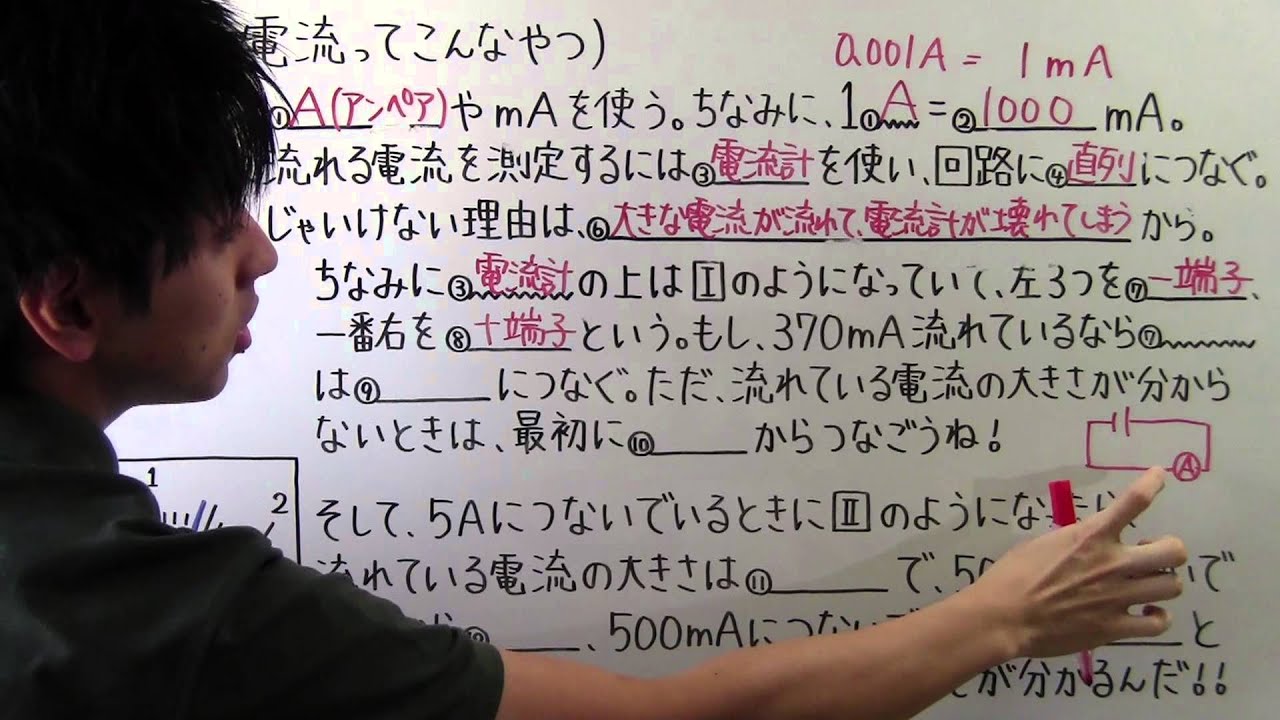 電流ってこんなやつ)
0.001A = 1mA
①A(アンペア)やmAを使う。ちなみに、1①A=②1000mA。
流れる電流を測定するには③電流計を使い、回路に④直列につなぐ。
じゃいけない理由は、⑥大きな電流が流れて、電流計が壊れてしまうから。
ちなみに③電流計の上はⅠのようになっていて、左3つを⑦ー端子、
一番右を⑧+端子という。もし、370mA流れているなら⑦
は⑨につなぐ。ただ、流れている電流の大きさが分から
ないときは、最初に⑩からつなごうね!
A
1
2
そして、5AにつないでいるときにⅡのようにな
流れている電流の大きさは⑪で、50いで
⑫、500mAにつないで と
が分かるんだ!!